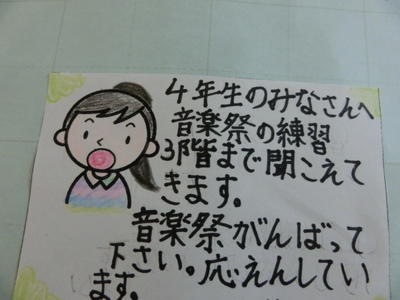 4年生のみなさんへ
音楽祭の練習
3階まで聞こえて
きます。
音楽祭がんばって
下さい。応えんしてい
ます。